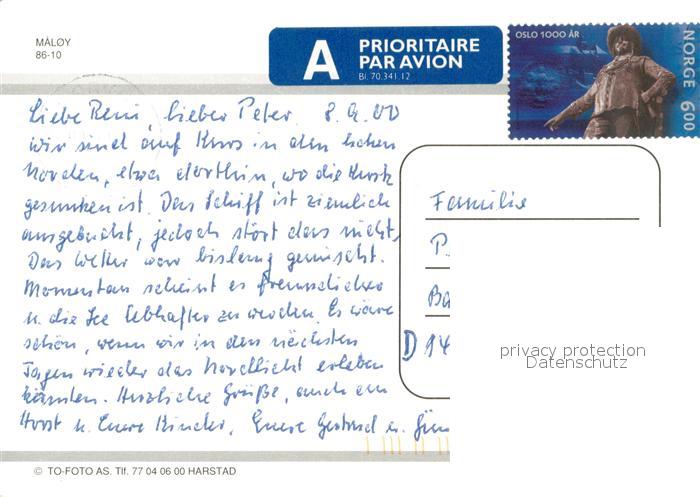 MÅLØY
86-10
A PRIORITAIRE
PAR AVION
Bl. 70.341.12
OSLO 1000 ÅR
NORGE 600
Liebe Reni, lieber Peter. 8.9.00
wir sind auf Kurs in den hohen
Norden, etwa dorthin, wo die Kursk
gesunken ist. Das Schiff ist ziemlich
ausgebucht, jedoch stört das nicht.
Das Wetter war bislang gemischt.
Momentan scheint es freundlicher
u. die See lebhafter zu werden. Es wäre
schön, wenn wir in den nächsten
Tagen wieder das Nordlicht erleben
könnten. Herzliche Grüße, auch an
Horst u. Eure Kinder, Eure Gertrud u. Gün
Familie
P.
Ba
D 14
privacy protection
Datenschutz
© TO-FOTO AS. Tlf. 77 04 06 00 HARSTAD